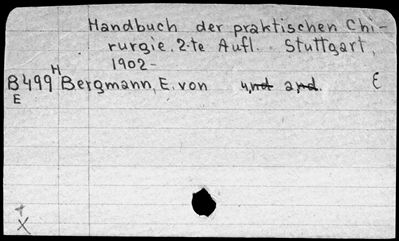 Handbuch der praktischen Chi-
rurgie. 2-te Aufl. Stuttgart,
1902-
H
B499 Bergmann, E. von u,nd a,nd. E
E
+
X